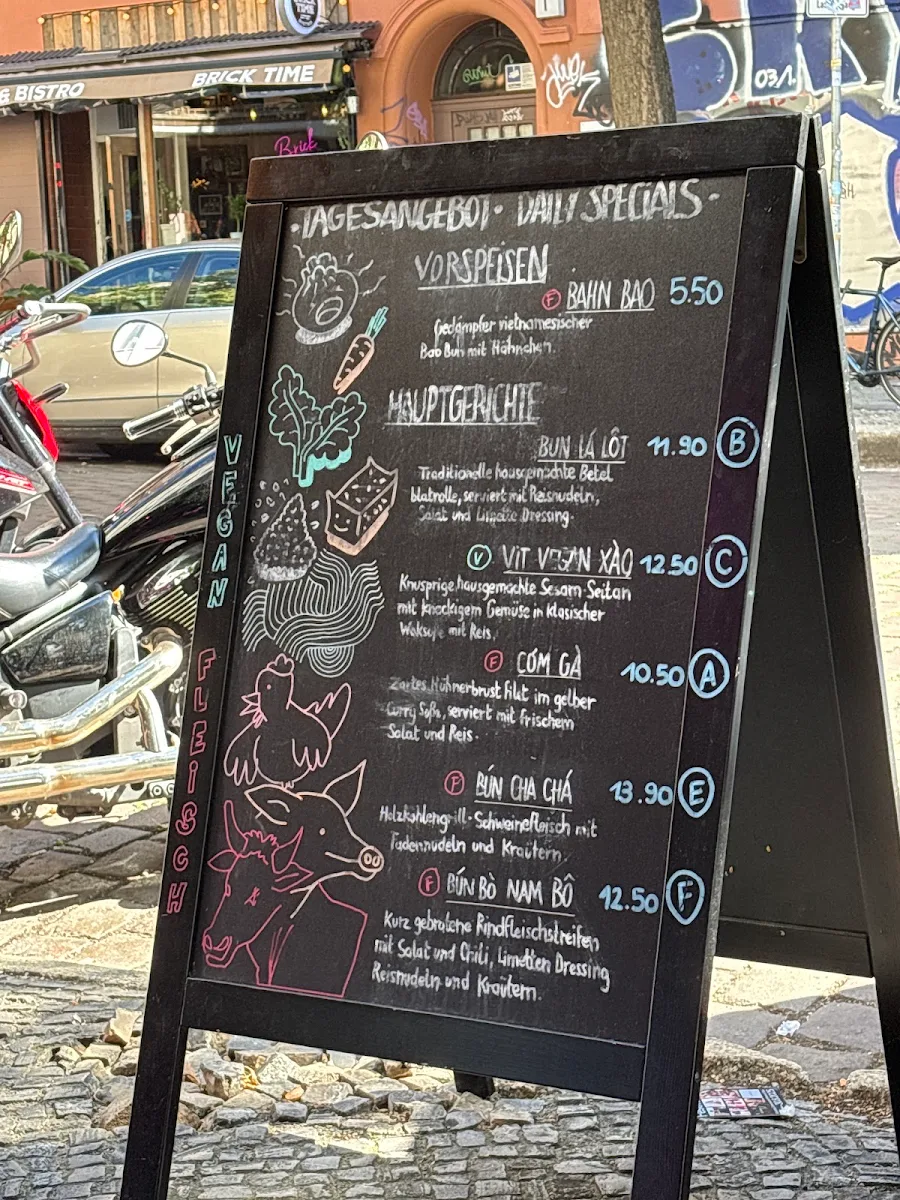 BRICK TIME
& BISTRO
Brick
03/1.
·TAGESANGEBOT· DAILY SPECIALS·
VORSPEISEN
F BAHN BAO 5.50
Gedämpfer vietnamesischer
Bao Bun mit Hähnchen.
HAUPTGERICHTE
BUN LÁ LỐT 11.90 B
Traditionelle hausgemachte Betel
blatrolle, serviert mit Reisnudeln,
Salat und Limette Dressing.
V VIT VEGAN XÀO 12.50 C
Knusprige, hausgemachte Sesam-Seitan
mit knackigem Gemüse in klasischer
Woksoße mit Reis.
F CÓM GÀ 10.50 A
Zartes Hühnerbrust filet im gelber
Curry Soße, serviert mit frischem
Salat und Reis.
F BÚN CHA CHÁ 13.90 E
Holzkohlengrill-Schweinefleisch mit
Fadennudeln und Kräutern.
F BÚN BÒ NAM BÔ 12.50 F
Kurz gebratene Rindfleischstreifen
mit Salat und Chili, Limetten Dressing
Reisnudeln und Kräutern.
VEGAN
FLEISCH